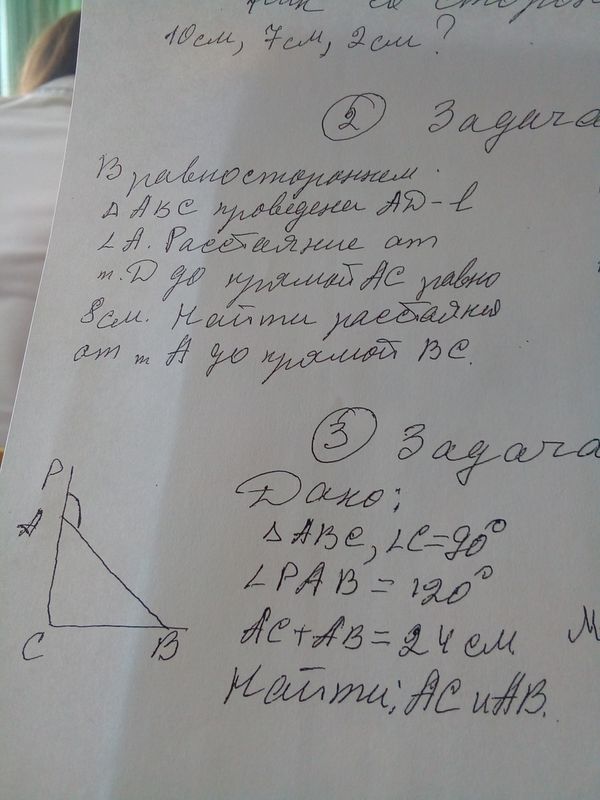 10см, 7см, 2см?
2 Задача
В равностороннем
∆ АВС проведена AD-l
∠A. Расстаяние от
т. D до прямой AC равно
8см. Найти расстаяния
от т А до прямой BC.
3 Задача
Дано:
∆ABC, ∠C=90°
∠PAB = 120°
AC+AB=24 см
Найти: AC и AB.
P
A
C
B
М